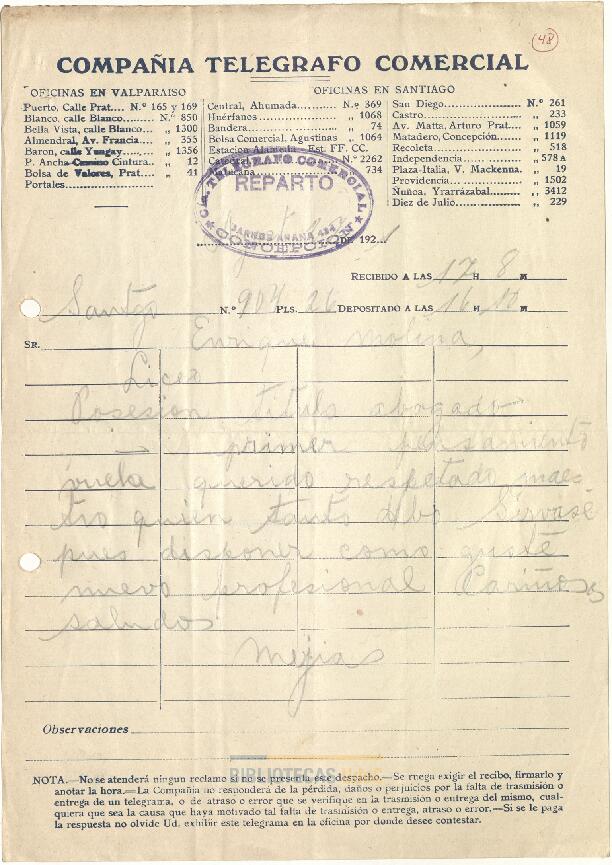 48
COMPAÑIA TELEGRAFO COMERCIAL
OFICINAS EN VALPARAISO
Puerto, Calle Prat.... N.º 165 y 169
Blanco, calle Blanco......... N.º 850
Bella Vista, calle Blanco... „ 1300
Almendral, Av. Francia ... „ 353
Baron, calle Yungay......... „ 1356
P. Ancha Camino Cintura.. „ 12
Bolsa de Valores, Prat..... „ 41
Portales
OFICINAS EN SANTIAGO
Central, Ahumada........ N.º 369
Huérfanos „ 1068
Bandera „ 74
Bolsa Comercial, Agustinas „ 1064
Estacion Alameda Est. FF. CC.
Catedral N.º 2262
734
San Diego N.º 261
Castro „ 233
Av. Matta, Arturo Prat.... „ 1059
Matadero, Concepción...... „ 1119
Recoleta „ 518
Independencia „ 578 A
Plaza-Italia, V. Mackenna. „ 19
Providencia „ 1502
Nuñoa, Yrarrázabal „ 3412
Diez de Julio „ 229
CIA. TELEGRAFO COMERCIAL
REPARTO
BARROS ARANA
CONCEPCION
DE 192
RECIBIDO A LAS 17 H 8 M
Santgo N.º 904 PLS. 26 DEPOSITADO A LAS 16 H 10 M
SR. Enrique Molina,
Liceo
Posesion titulo abogado
primer pensamiento
vuela querido respetado maes-
tro quien tanto debo Sirvase
pues disponer como guste
nuevo profesional Cariños
saludos
Mejias
Observaciones
BIBLIOTECAS
NOTA.—No se atenderá ningun reclamo si no se presenta este despacho.—Se ruega exigir el recibo, firmarlo y
anotar la hora.—La Compañia no responderá de la pérdida, daños o perjuicios por la falta de trasmisión o
entrega de un telegrama, o de atraso o error que se verifique en la trasmisión o entrega del mismo, cual-
quiera que sea la causa que haya motivado tal falta de trasmisión o entrega, atraso o error.—Si se le paga
la respuesta no olvide Ud. exhibir este telegrama en la oficina por donde desee contestar.